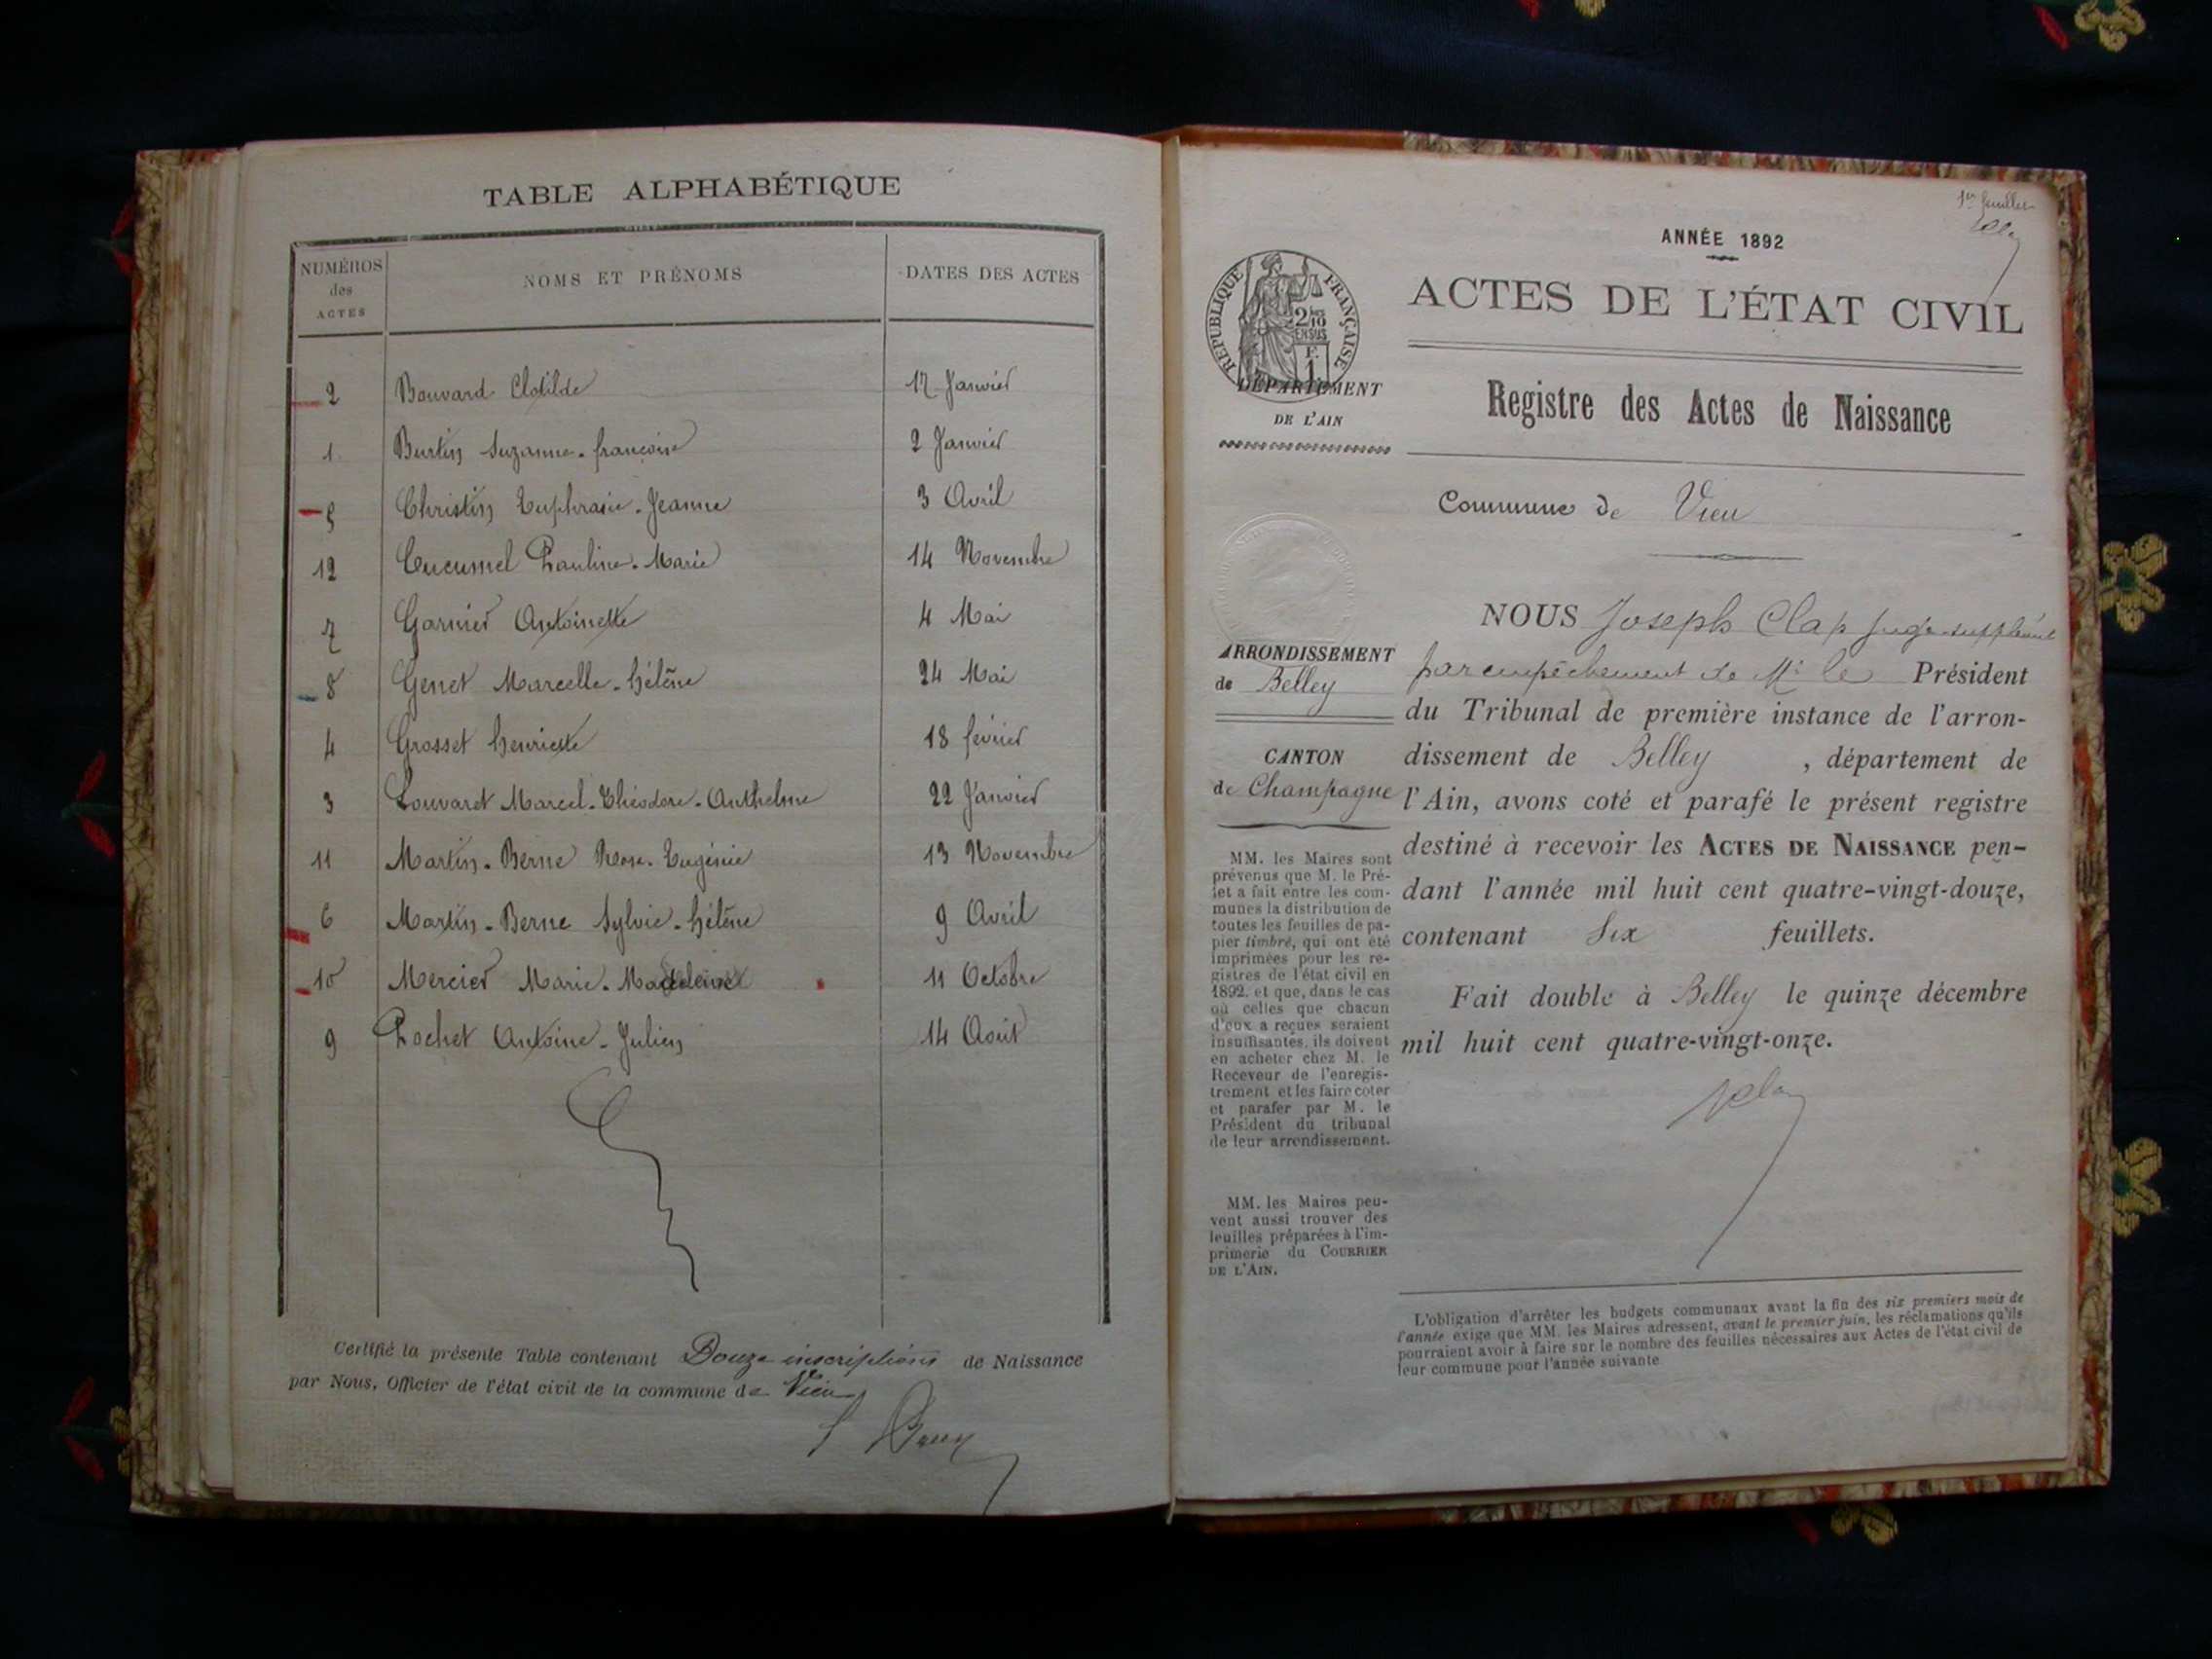 TABLE ALPHABÉTIQUE
NUMÉROS des ACTES
NOMS ET PRÉNOMS
DATES DES ACTES
2 Bouvard Clotilde 17 Janvier
1 Burtin Suzanne-françoise 2 Janvier
5 Christin Euphrasie-Jeanne 3 Avril
12 Cucumel Pauline-Marie 14 Novembre
7 Garnier Antoinette 4 Mai
8 Genet Marcelle-hélène 24 Mai
4 Grosset henriette 18 février
3 Louvaret Marcel-Théodore-Anthelme 22 Janvier
11 Martin-Berne Rose-Eugénie 13 Novembre
6 Martin-Berne Sylvie-hélène 9 Avril
10 Mercier Marie-Madeleine 11 Octobre
9 Pochet Antoine-Julien 14 Août
Certifié la présente Table contenant Douze inscriptions de Naissance
par Nous, Officier de l'état civil de la commune de Vieu
1er feuillet
ANNÉE 1892
RÉPUBLIQUE FRANÇAISE
ACTES DE L'ÉTAT CIVIL
DÉPARTEMENT
DE L'AIN
Registre des Actes de Naissance
Commune de Vieu
ARRONDISSEMENT
de Belley
CANTON
de Champagne
MM. les Maires sont
prévenus que M. le Pré-
fet a fait entre les com-
munes la distribution de
toutes les feuilles de pa-
pier timbré, qui ont été
imprimées pour les re-
gistres de l'état civil en
1892, et que, dans le cas
où celles que chacun
d'eux a reçues seraient
insuffisantes, ils doivent
en acheter chez M. le
Receveur de l'enregis-
trement et les faire coter
et parafer par M. le
Président du tribunal
de leur arrondissement.
MM. les Maires peu-
vent aussi trouver des
feuilles préparées à l'im-
primerie du COURRIER
DE L'AIN.
NOUS Joseph Clap juge suppléant
par empêchement de Mr le Président
du Tribunal de première instance de l'arron-
dissement de Belley , département de
l'Ain, avons coté et parafé le présent registre
destiné à recevoir les ACTES DE NAISSANCE pen-
dant l'année mil huit cent quatre-vingt-douze,
contenant Six feuillets.
Fait double à Belley le quinze décembre
mil huit cent quatre-vingt-onze.
L'obligation d'arrêter les budgets communaux avant la fin des six premiers mois de
l'année exige que MM. les Maires adressent, avant le premier juin, les réclamations qu'ils
pourraient avoir à faire sur le nombre des feuilles nécessaires aux Actes de l'état civil de
leur commune pour l'année suivante